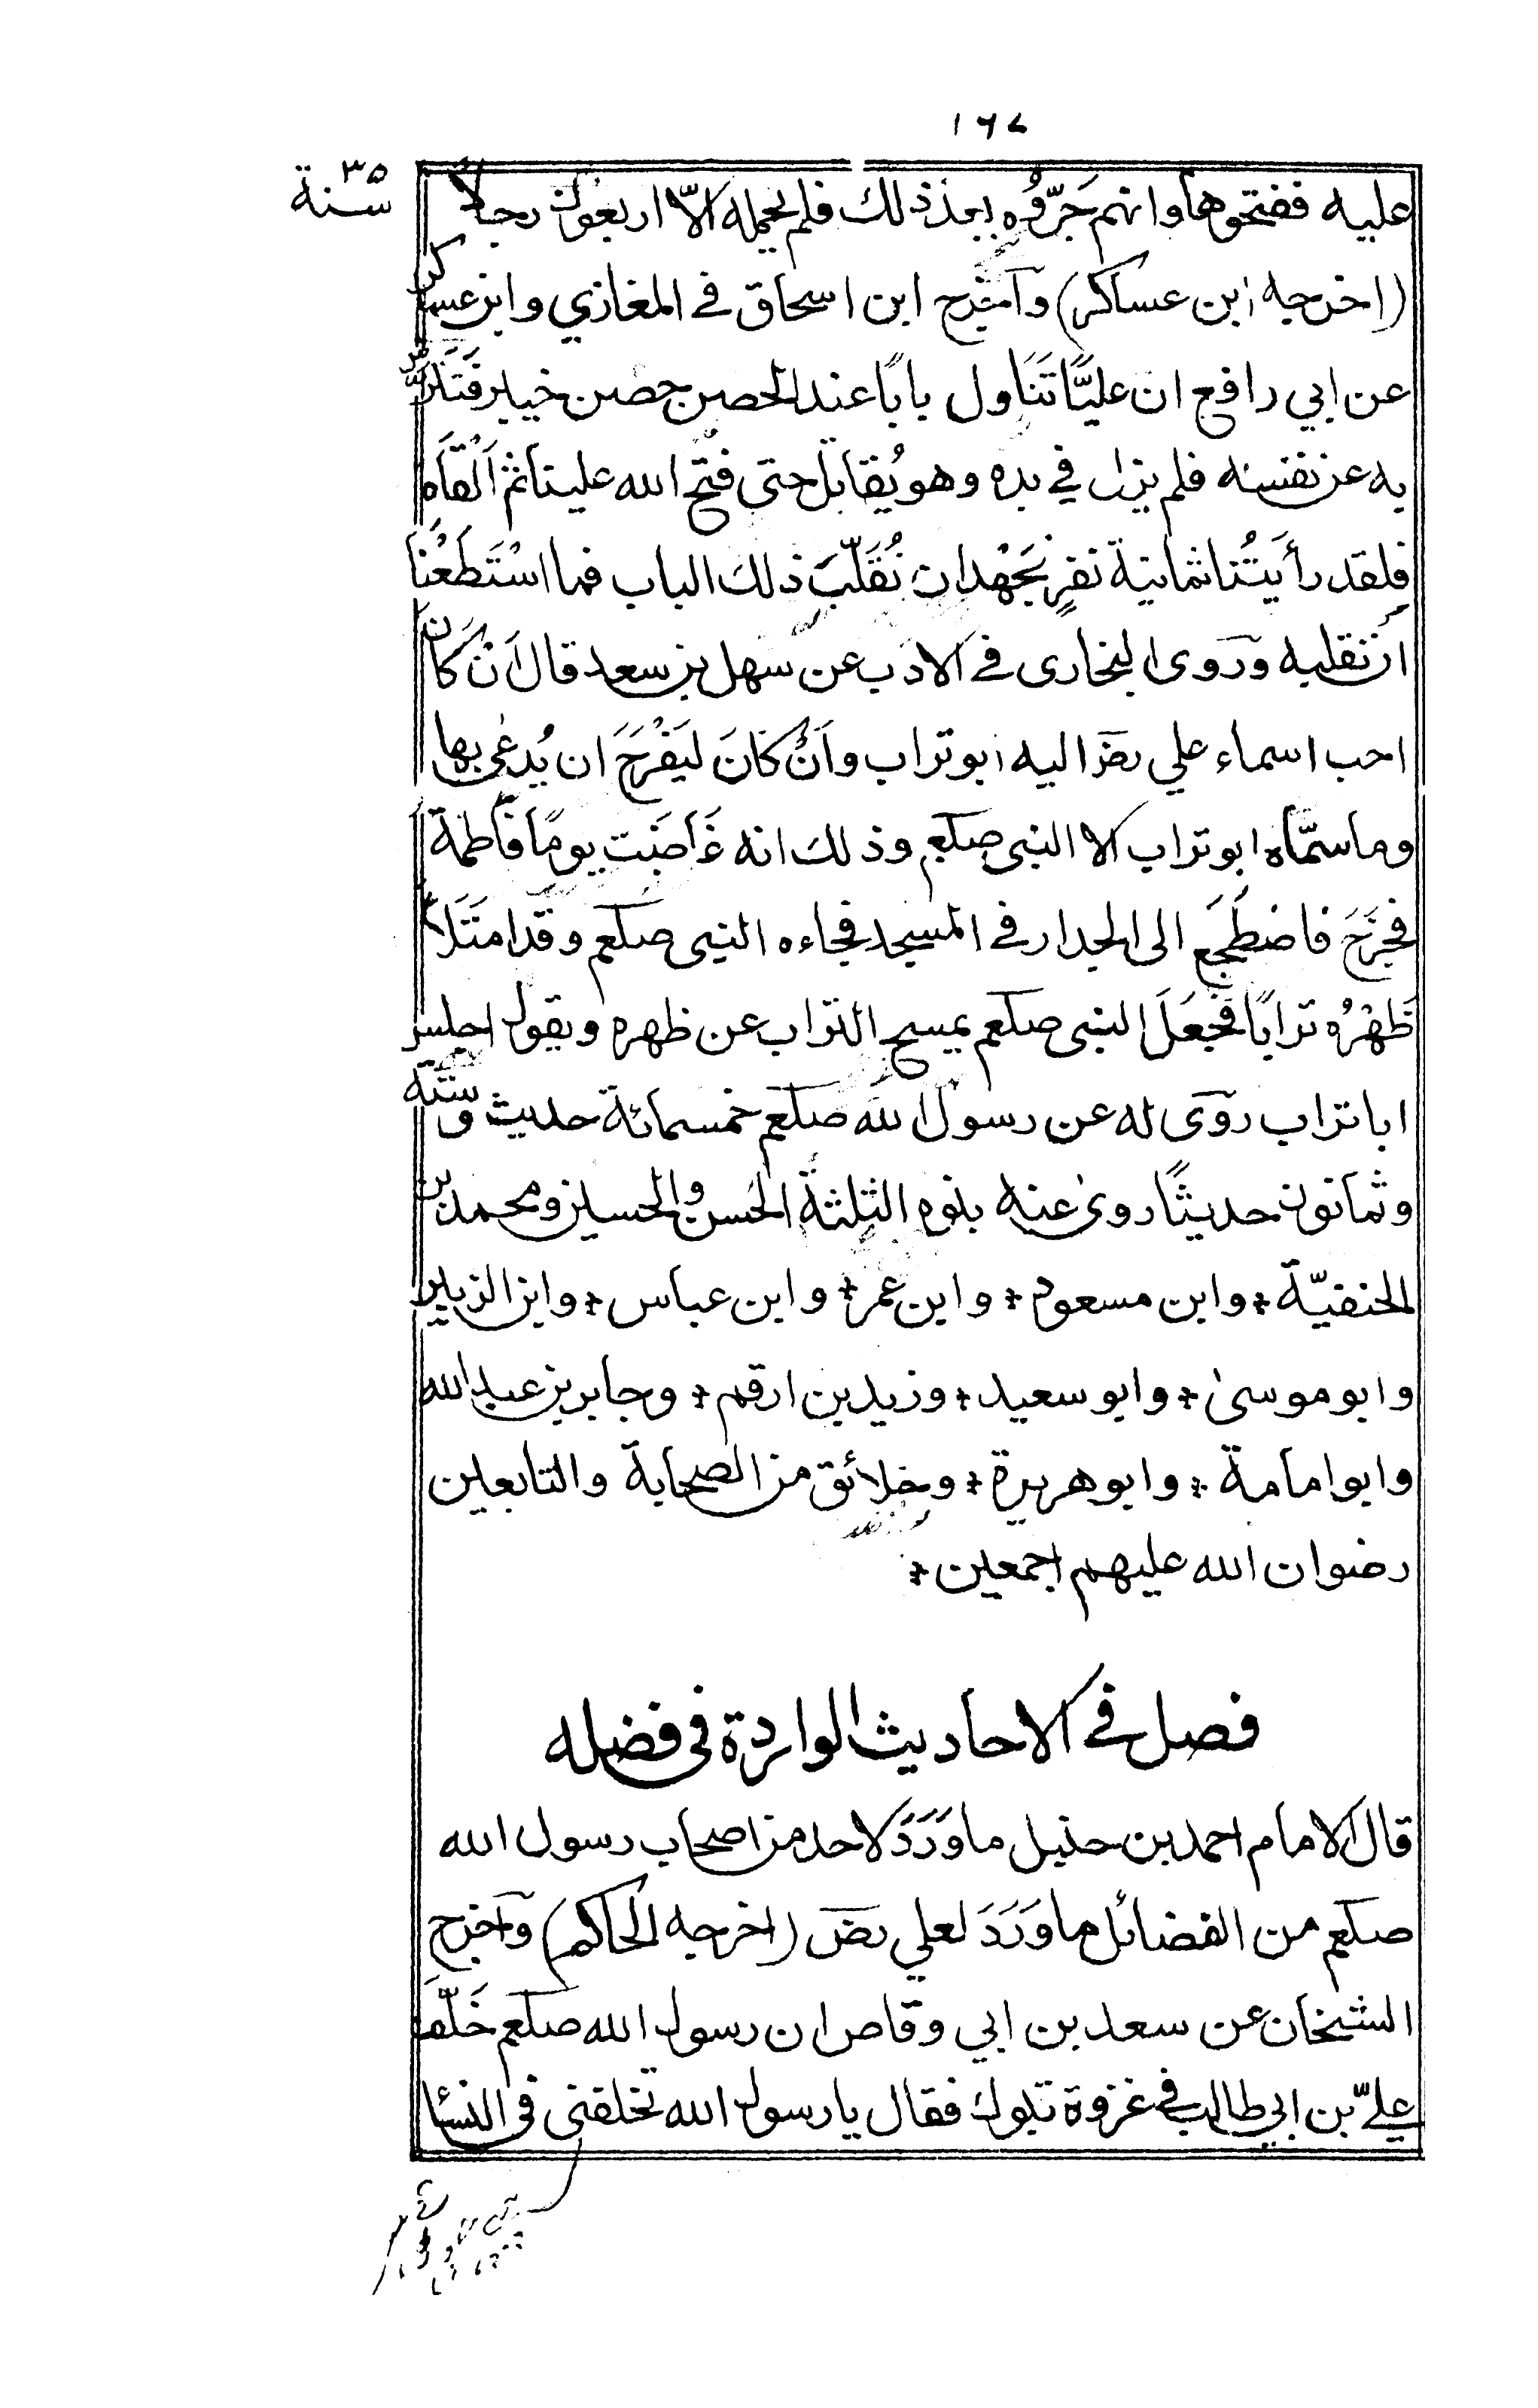 ١٦٧
سنة ٣٥
عليه ففتحوها وانهم جَرّوه بعد ذلك فلم يحمله الّا اربعون رجلاً
(اخرجه ابن عساكر) وآخرج ابن اسحاق في المغازي وابن عساكر
عن ابي رافع ان عليًّا تَنَاول بابًا عند الحصن حصن خيبر فَتَتَرَّسَ
به عن نفسه فلم يزل في يده وهو يُقاتل حتى فتح الله علينا ثم اَلْقَاه
فلقد رأيتُنا ثمانية نفرٍ نَجْهَد ان نُقَلّبَ ذلك الباب فما اسْتَطَعْنَا
ان نقلبه وروى البخارى في الادب عن سهل بن سعد قال اَنْ كَان
احب اسماء علي رضؔ اليه ابو تراب واَنْ كَانَ لَيَفْرَحَ ان يُدعٰى بها
وما سمّاه ابو تراب الا النبى صلعم وذلك انه غَاضَبَت يومًا فاطمة
فخرَجَ فاضطَجَع الى الجدار في المسجد فجاءه النبى صلعم وقد امتَلَأَ
ظَهْرُه ترابًا فَجَعَلَ النبى صلعم يمسح التراب عن ظهره ويقول اجلس
ابا تراب روى له عن رسول الله صلعم خمسمائة حديث وستة
وثمانون حديثًا روىٰ عنه بنوه الثلثة الحسن والحسين ومحمد بن
الحنفيّة * وابن مسعود * وابن عمر * وابن عباس * وابن الزبير
وابو موسىٰ * وابو سعيد * وزيد بن ارقم * وجابر بن عبد الله
وابو امامة * وابو هريرة * وخلائق من الصحابة والتابعين
رضوان الله عليهم اجمعين *
فصل في الاحاديث الواردة في فضله
قال الامام احمد بن حنبل ما وَرَدَ لاحد من اصحاب رسول الله
صلعم من الفضائل ما وَرَدَ لعلي رضؔ (اخرجه الحاكم) وآخرج
الشيخان عن سعد بن ابي وقاص ان رسول الله صلعم خَلَّفَ
عليّ بن ابي طالب في غزوة تبوك فقال يا رسول الله تخلفنى في النساء